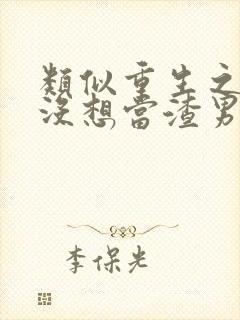 類似重生之
沒想當渣男
李保光